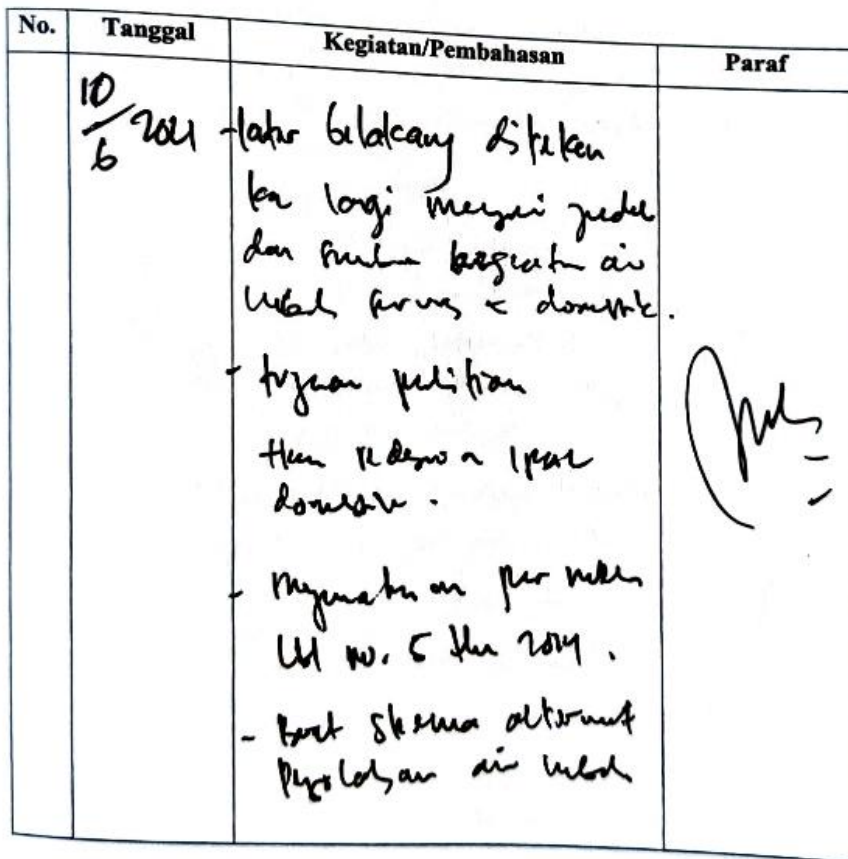 No. Tanggal Kegiatan/Pembahasan Paraf
10/6 2021 - latar belakang ditekan
kan lagi mengenai
dan kegiatan air
limbah & domestik.
- tujuan penelitian
domestik.
- menggunakan per
LH no. 5 thn 2014.
- Buat skema alternatif
Pengolahan air limbah